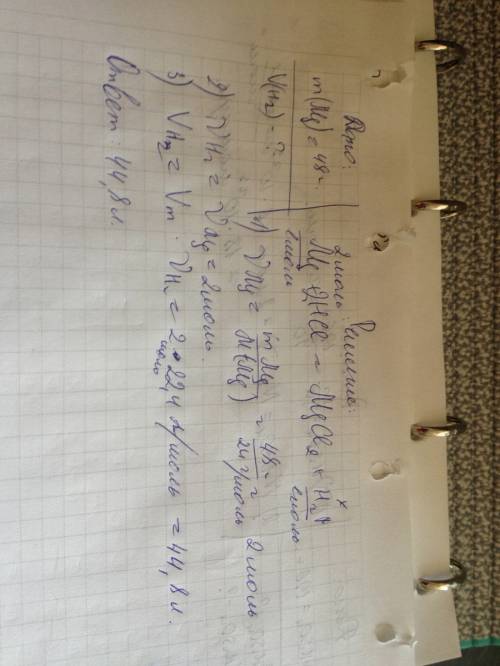 Дано:
m(Mg) = 48г.
V(H₂) - ?
Решение:
2моль x
Mg + 2HCl = MgCl₂ + H₂↑
1моль моль
1) νMg = mMg / M(Mg) = 48г / 24г/моль = 2 моль
2) νH₂ = νMg = 2моль.
3) VH₂ = Vm · νH₂ = 2моль · 22,4 л/моль = 44,8 л.
Ответ: 44,8л.